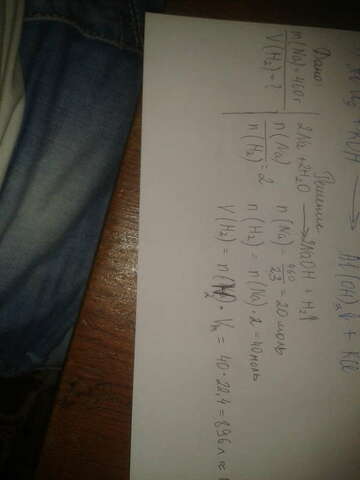 Al(OH)₃↓ + KCl
Дано:
m(Na)=460г
V(H₂)=?
Решение
2Na + 2H₂O ⟶ 2NaOH + H₂↑
n(Na)
n(H₂) = 2
n(Na) = 460/23 = 20 моль
n(H₂) = n(Na)·2 = 40 моль
V(H₂) = n(H₂)·Vₘ = 40·22,4 = 896 л